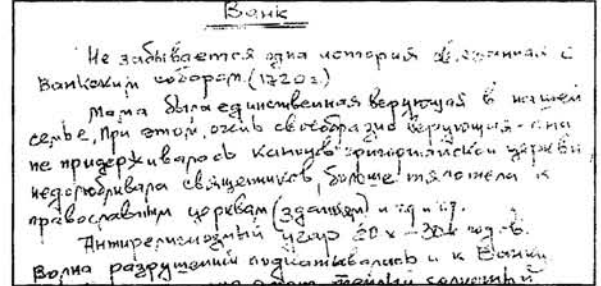 Ванк
Не забывается одна история связанная с
Ванкским собором. (1720 г.)
Мама была единственная верующая в нашей
семье, при этом, очень своеобразно верующая - она
не придерживалась канонов григорианской церкви,
недолюбливала священников, больше тяготела к
православным церквам (зданиям) и тд и тп.
Антирелигиозный угар 20х - 30х годов.
Волна разрушений подкатывалась и к Ванку.